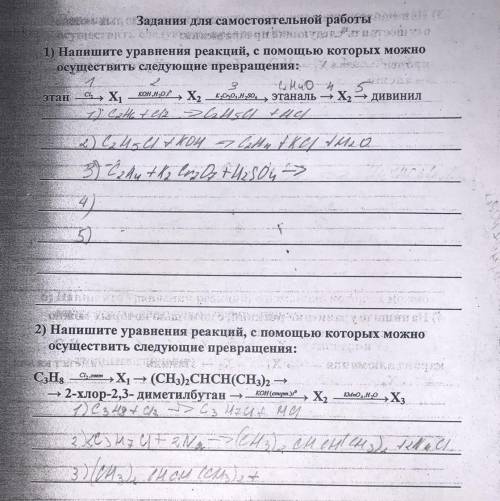 Задания для самостоятельной работы
1) Напишите уравнения реакций, с помощью которых можно
осуществить следующие превращения:
1 2 3 C₂H₄O 4 5
этан —Cl₂→ X₁ —KOH,H₂O,t°→ X₂ —K₂Cr₂O₇,H₂SO₄→ этаналь → X₂ → дивинил
1) C₂H₆ + Cl₂ → C₂H₅Cl + HCl
2) C₂H₅Cl + KOH → C₂H₄ + KCl + H₂O
3) C₂H₄ + K₂Cr₂O₇ + H₂SO₄ →
4)
5)
2) Напишите уравнения реакций, с помощью которых можно
осуществить следующие превращения:
C₃H₈ —Cl₂,свет→ X₁ → (CH₃)₂CHCH(CH₃)₂ →
→ 2-хлор-2,3- диметилбутан —KOH(спирт)t°→ X₂ —KMnO₄,H₂O→ X₃
1) C₃H₈ + Cl₂ → C₃H₇Cl + HCl
2) 2C₃H₇Cl + 2Na → (CH₃)₂ CHCH(CH₃)₂ + 2NaCl
3) (CH₃)₂ CHCH(CH₃)₂ +